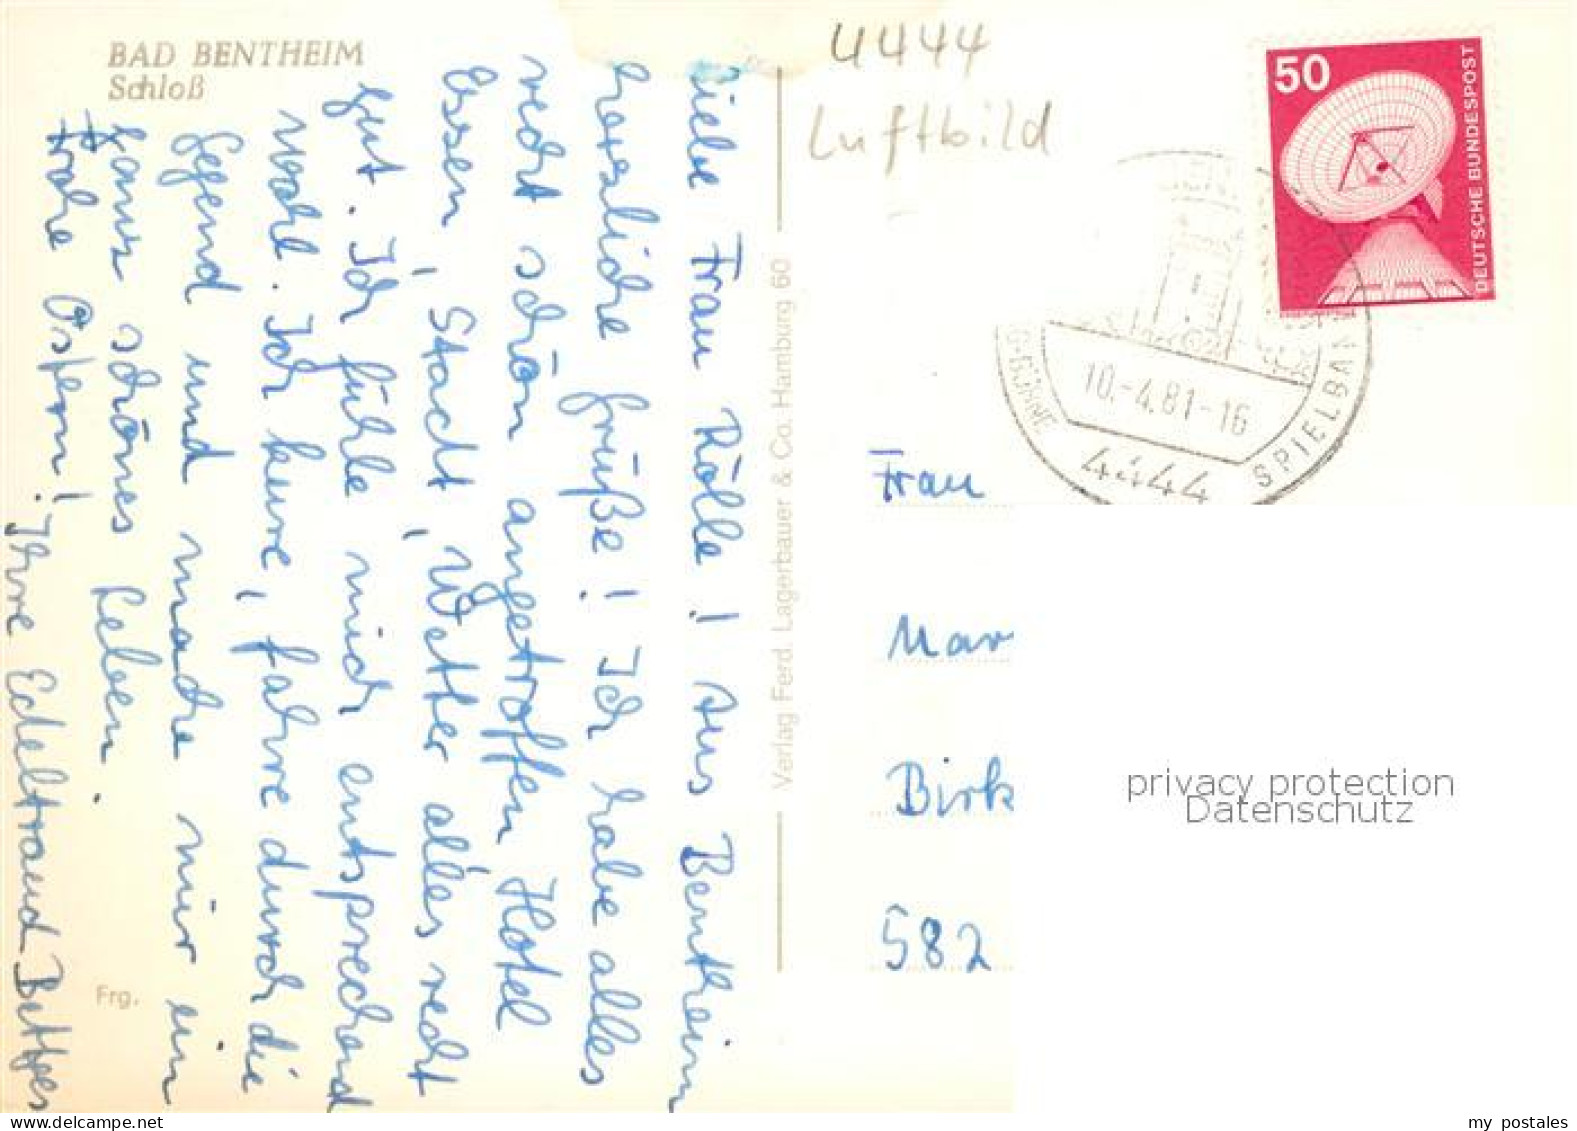 BAD BENTHEIM
Schloß
Liebe Frau Rölle! Aus Bentheim
herzliche Grüße! Ich habe alles
recht schön angetroffen Hotel
Essen, Stadt, Wetter alles recht
gut. Ich fühle mich entsprechend
wohl. Ich kure, fahre durch die
Gegend und mache mir ein
ganz schönes Leben.
Frohe Ostern!
Ihre Edeltraud
Frg.
Verlag Ferd. Lagerbauer & Co. Hamburg 60
4444
Luftbild
50
DEUTSCHE BUNDESPOST
10.-4.81-16
4444
Frau
Mar
Birk
582
privacy protection
Datenschutz
www.delcampe.net
my postales